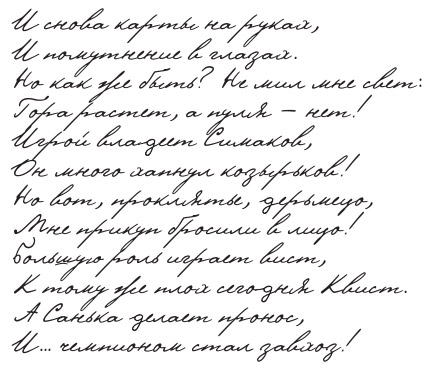 И снова карты на руках,
И помутнение в глазах.
Но как же быть? Не мил мне свет:
Гора растет, а пуля – нет!
Игрой владеет Симаков,
Он много хапнул козырьков!
Но вот, проклятье, дерьмецо,
Мне прикуп бросили в лицо!
Большую роль играет вист,
К тому же плох сегодня Квист.
А Санька делает пронос,
И... чемпионом стал завхоз!